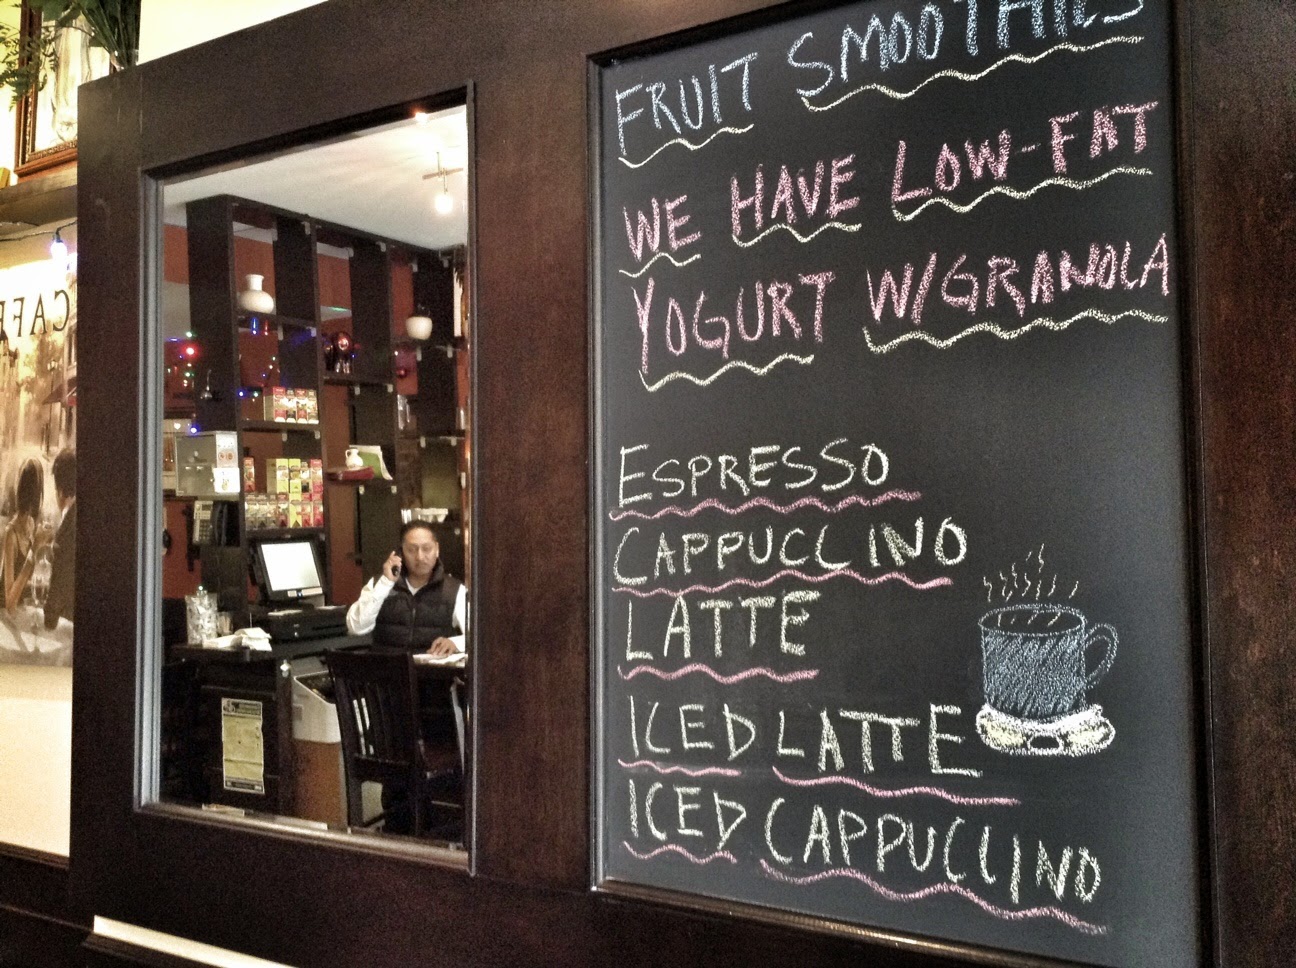 FRUIT SMOOTHIES
WE HAVE LOW-FAT
YOGURT W/GRANOLA
ESPRESSO
CAPPUCCINO
LATTE
ICED LATTE
ICED CAPPUCCINO
CAFE